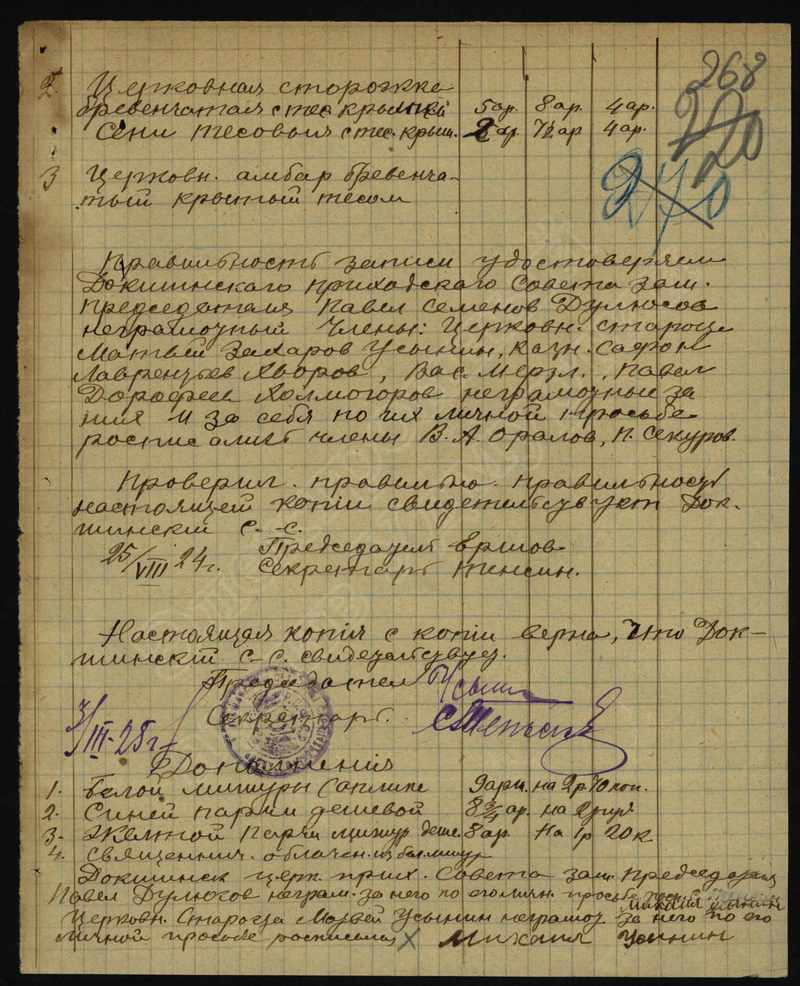 268
220
270
2. Церковная сторожка
бревенчатая с тес. крышкой 5 ар. 8 ар. 4 ар.
Сени тесовыя с тес. крыш. 2 ар 7½ ар 4 ар.
3 Церковн. амбар бревенча-
тый крытый тесом
Правильность записи удостоверяем
Докшинскаго приходскаго Совета зам.
председателя Павел Семенов Дулюсов
неграмотный Члены: Церковн. староста
Матвей Захаров Усынин, казн. Сафон
Лаврентьев Хворов, Вас. Мерзл., Павел
Дорофеев Холмогоров неграмотные за
них и за себя по их личной просьбе
росписались члены В. А. Оралов, П. Секуров.
Проверил. правильно. правильность
настоящей копии свидетельствует Док-
шинский С.-С.
25/VIII 24 г. Председатель Ершов
Секретарь Тенсин.
Настоящая копия с копии верна, что Док-
шинский С. С. свидетельствует.
Председатель Усынин
Секретарь.
3/III-25 г.
Дополнения
1. Белой мишуры 9 арш. на 2р 70 коп.
2. Синей парчи дешевой 8¾ ар. на 2 руб
3. Желтой парчи мишур деше. 8 ар. на 1р 20 к
4. Священнич. облачен. из бел мишур
Докшинск церк. прих. Совета зам. Председателя
Павел Дулюсов неграм. за него по его личн. просьбе
Церковн. Староста Матвей Усынин неграмот. за него по его
личной просьбе росписался х Михаил Усынин